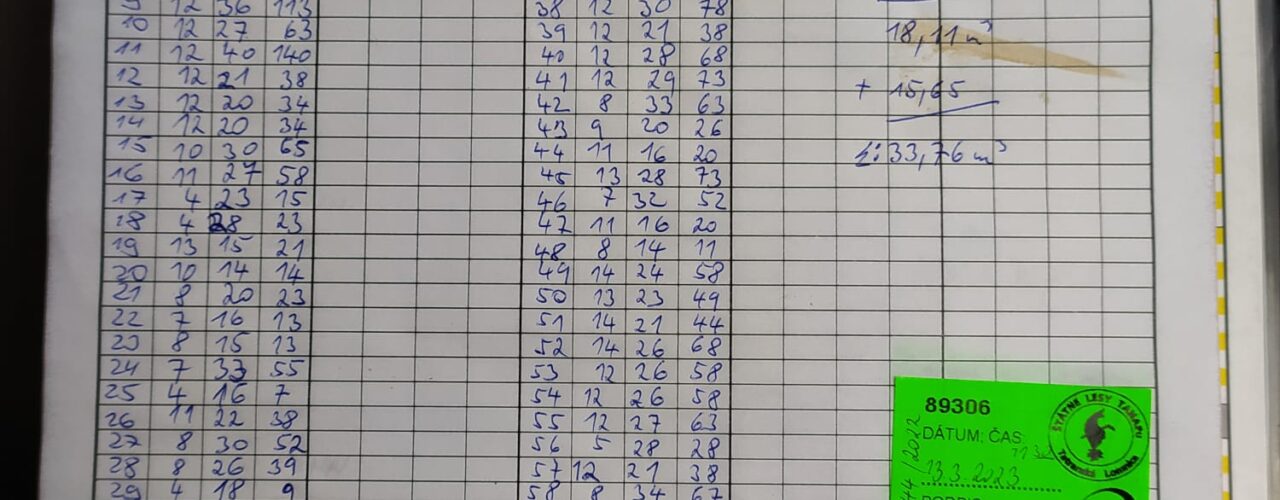 9 12 36 113
10 12 27 63
11 12 40 140
12 12 21 38
13 12 20 34
14 12 20 34
15 10 30 65
16 11 27 58
17 4 23 15
18 4 28 23
19 13 15 21
20 10 14 14
21 8 20 23
22 7 16 13
23 8 15 13
24 7 33 55
25 4 16 7
26 11 22 38
27 8 30 52
28 8 26 39
29 4 18 9
38 12 30 78
39 12 21 38
40 12 28 68
41 12 29 73
42 8 33 63
43 9 20 26
44 11 16 20
45 13 28 73
46 7 32 52
47 11 16 20
48 8 14 11
49 14 24 58
50 13 23 49
51 14 21 44
52 14 26 68
53 12 26 58
54 12 26 58
55 12 27 63
56 5 28 28
57 12 21 38
58 8 34 67
18,11 m³
+ 15,65
Σ: 33,76 m³
89306
DÁTUM: ČAS:
13.3.2023
ŠTÁTNE LESY TANAPU
Tatranská Lomnica